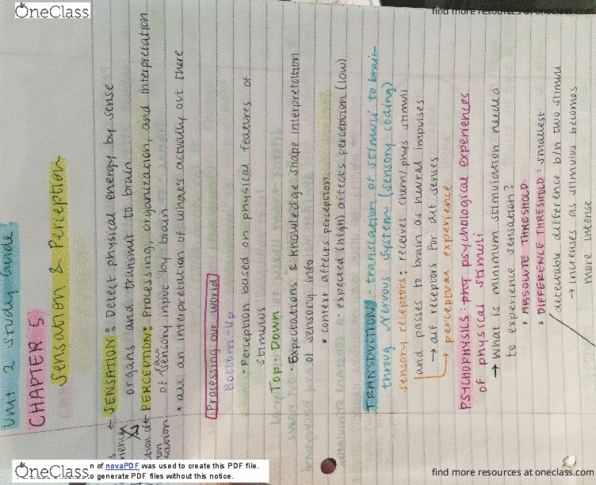 OneClass
find more resources at oneclass.com
Unit 2 Study Guide
CHAPTER 5
Sensation & Perception
SENSATION: Detect physical energy by sense
organs and transmit to brain
PERCEPTION: Processing, organization, and interpretation
of sensory input by brain
* all an interpretation of what's actually out there
Processing our world
Bottom-Up
- Perception based on physical features of
stimulus
Top-Down
- Expectations & knowledge shape interpretation
of sensory info
* context affects perception
- expected (high) affects perception (low)
TRANSDUCTION: translation of stimuli to brain
through nervous system (sensory coding)
sensory receptors: receives chem/phys stimuli
and passes to brain as neural impulses
→ dif receptors for dif senses
→ perceptual experience
PSYCHOPHYSICS: psychological experiences
of physical stimuli
→ What is minimum stimulation needed
to experience sensation?
* ABSOLUTE THRESHOLD
* DIFFERENCE THRESHOLD: smallest
detectable difference b/n two stimuli
→ increases as stimulus becomes
more intense
OneClass
n of novaPDF was used to create this PDF file.
to generate PDF files without this notice.
find more resources at oneclass.com